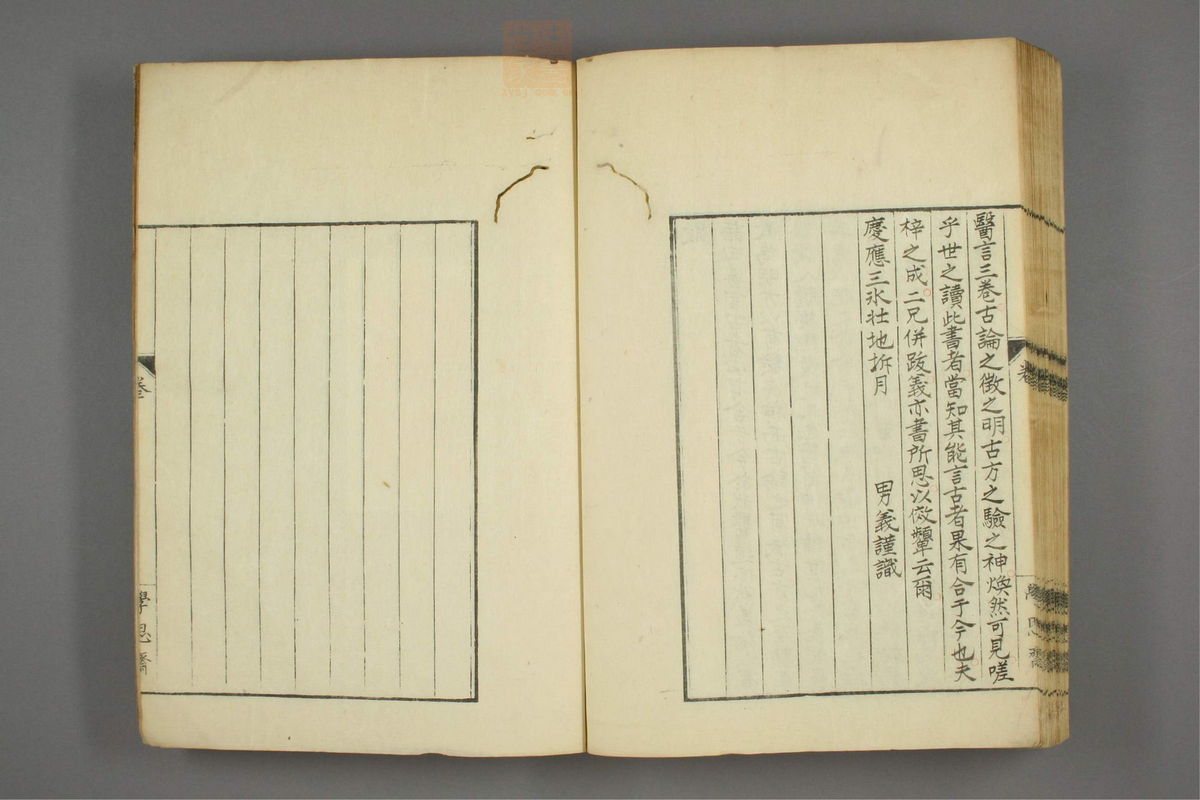 醫言三卷古論之徴之明古方之驗之神煥然可見嗟
乎世之讀此書者當知其能言古者果有合于今也夫
梓之成二兄併跋義亦書所思以傚顰云爾
慶應三氷壮地拆月　男義謹識
卷三
學思齋